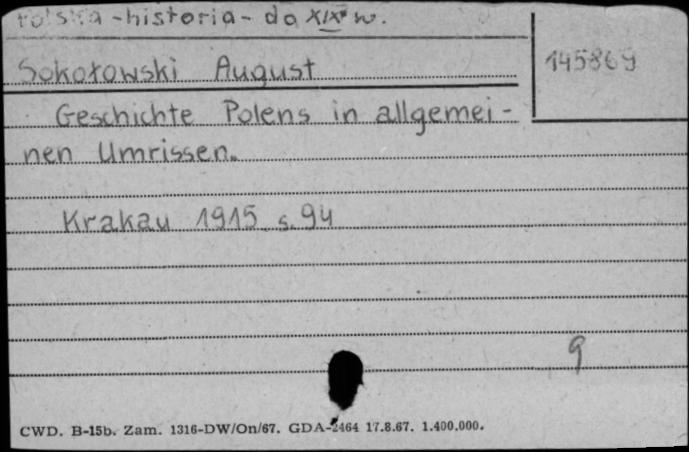 Polska - historia - do XIX w.
145869
Sokołowski August
Geschichte Polens in allgemei-
nen Umrissen.
Krakau 1915 s. 94
9
CWD. B-15b. Zam. 1316-DW/On/67. GDA-2464 17.8.67. 1.400.000.